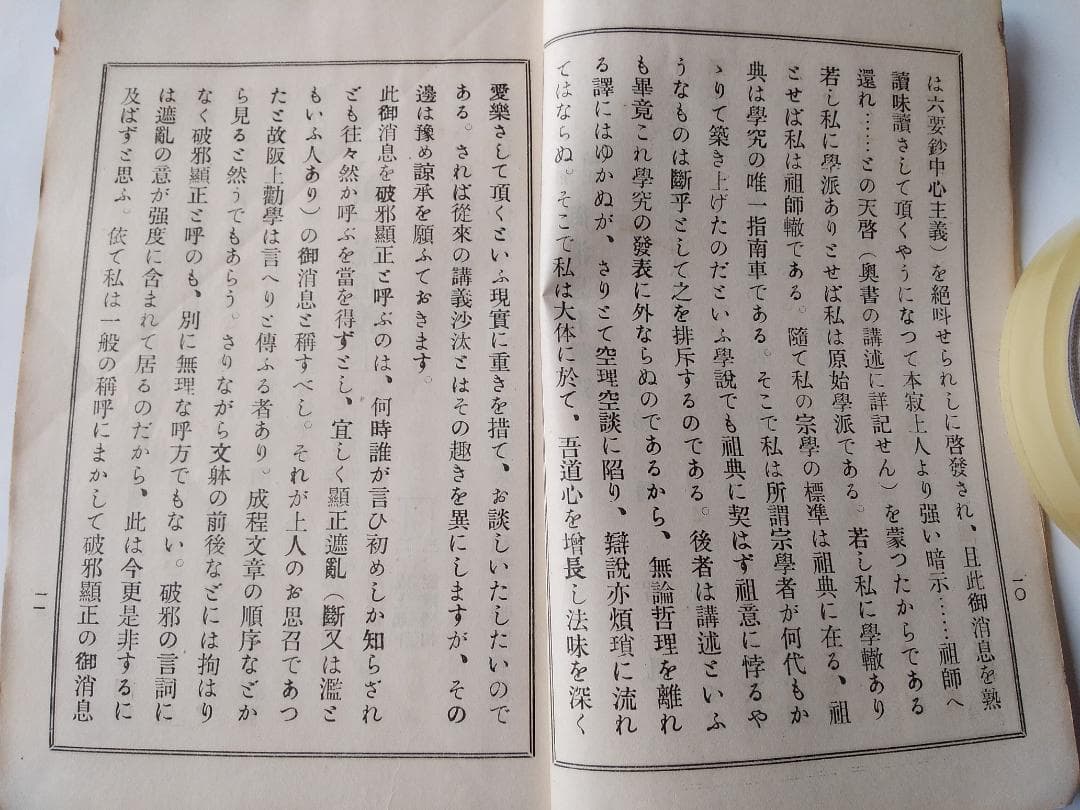 は六要鈔中心主義）を絕呌せられしに啓發され、且此御消息を熟
讀味讀さして頂くやうになつて本寂上人より强い暗示……祖師へ
還れ……との天啓（奧書の講述に詳記せん）を蒙つたからである
若し私に學派ありとせば私は原始學派である。若し私に學轍あり
とせば私は祖師轍である。隨て私の宗學の標準は祖典に在る、祖
典は學究の唯一指南車である。そこで私は所謂宗學者が何代もか
ゝりて築き上げたのだといふ學說でも祖典に契はず祖意に悖るや
うなものは斷乎として之を排斥するのである。後者は講述といふ
も畢竟これ學究の發表に外ならぬのであるから、無論哲理を離れ
る譯にはゆかぬが、さりとて空理空談に陷り、辯說亦煩瑣に流れ
てはならぬ。そこで私は大体に於て、吾道心を增長し法味を深く
一〇
愛樂さして頂くといふ現實に重きを措て、お談しいたしたいので
ある。されば從來の講義沙汰とはその趣きを異にしますが、その
邊は豫め諒承を願ふておきます。
此御消息を破邪顯正と呼ぶのは、何時誰が言ひ初めしか知らされ
ども往々然か呼ぶを當を得ずとし、宜しく顯正遮亂（斷又は濫と
もいふ人あり）の御消息と稱すべし。それが上人のお思召であつ
たと故阪上勸學は言へりと傳ふる者あり。成程文章の順序などか
ら見ると然うでもあらう。さりながら文躰の前後などには拘はり
なく破邪顯正と呼のも、別に無理な呼方でもない。破邪の言詞に
は遮亂の意が强度に含まれて居るのだから、此は今更是非するに
及ばずと思ふ。依て私は一般の稱呼にまかして破邪顯正の御消息
一一